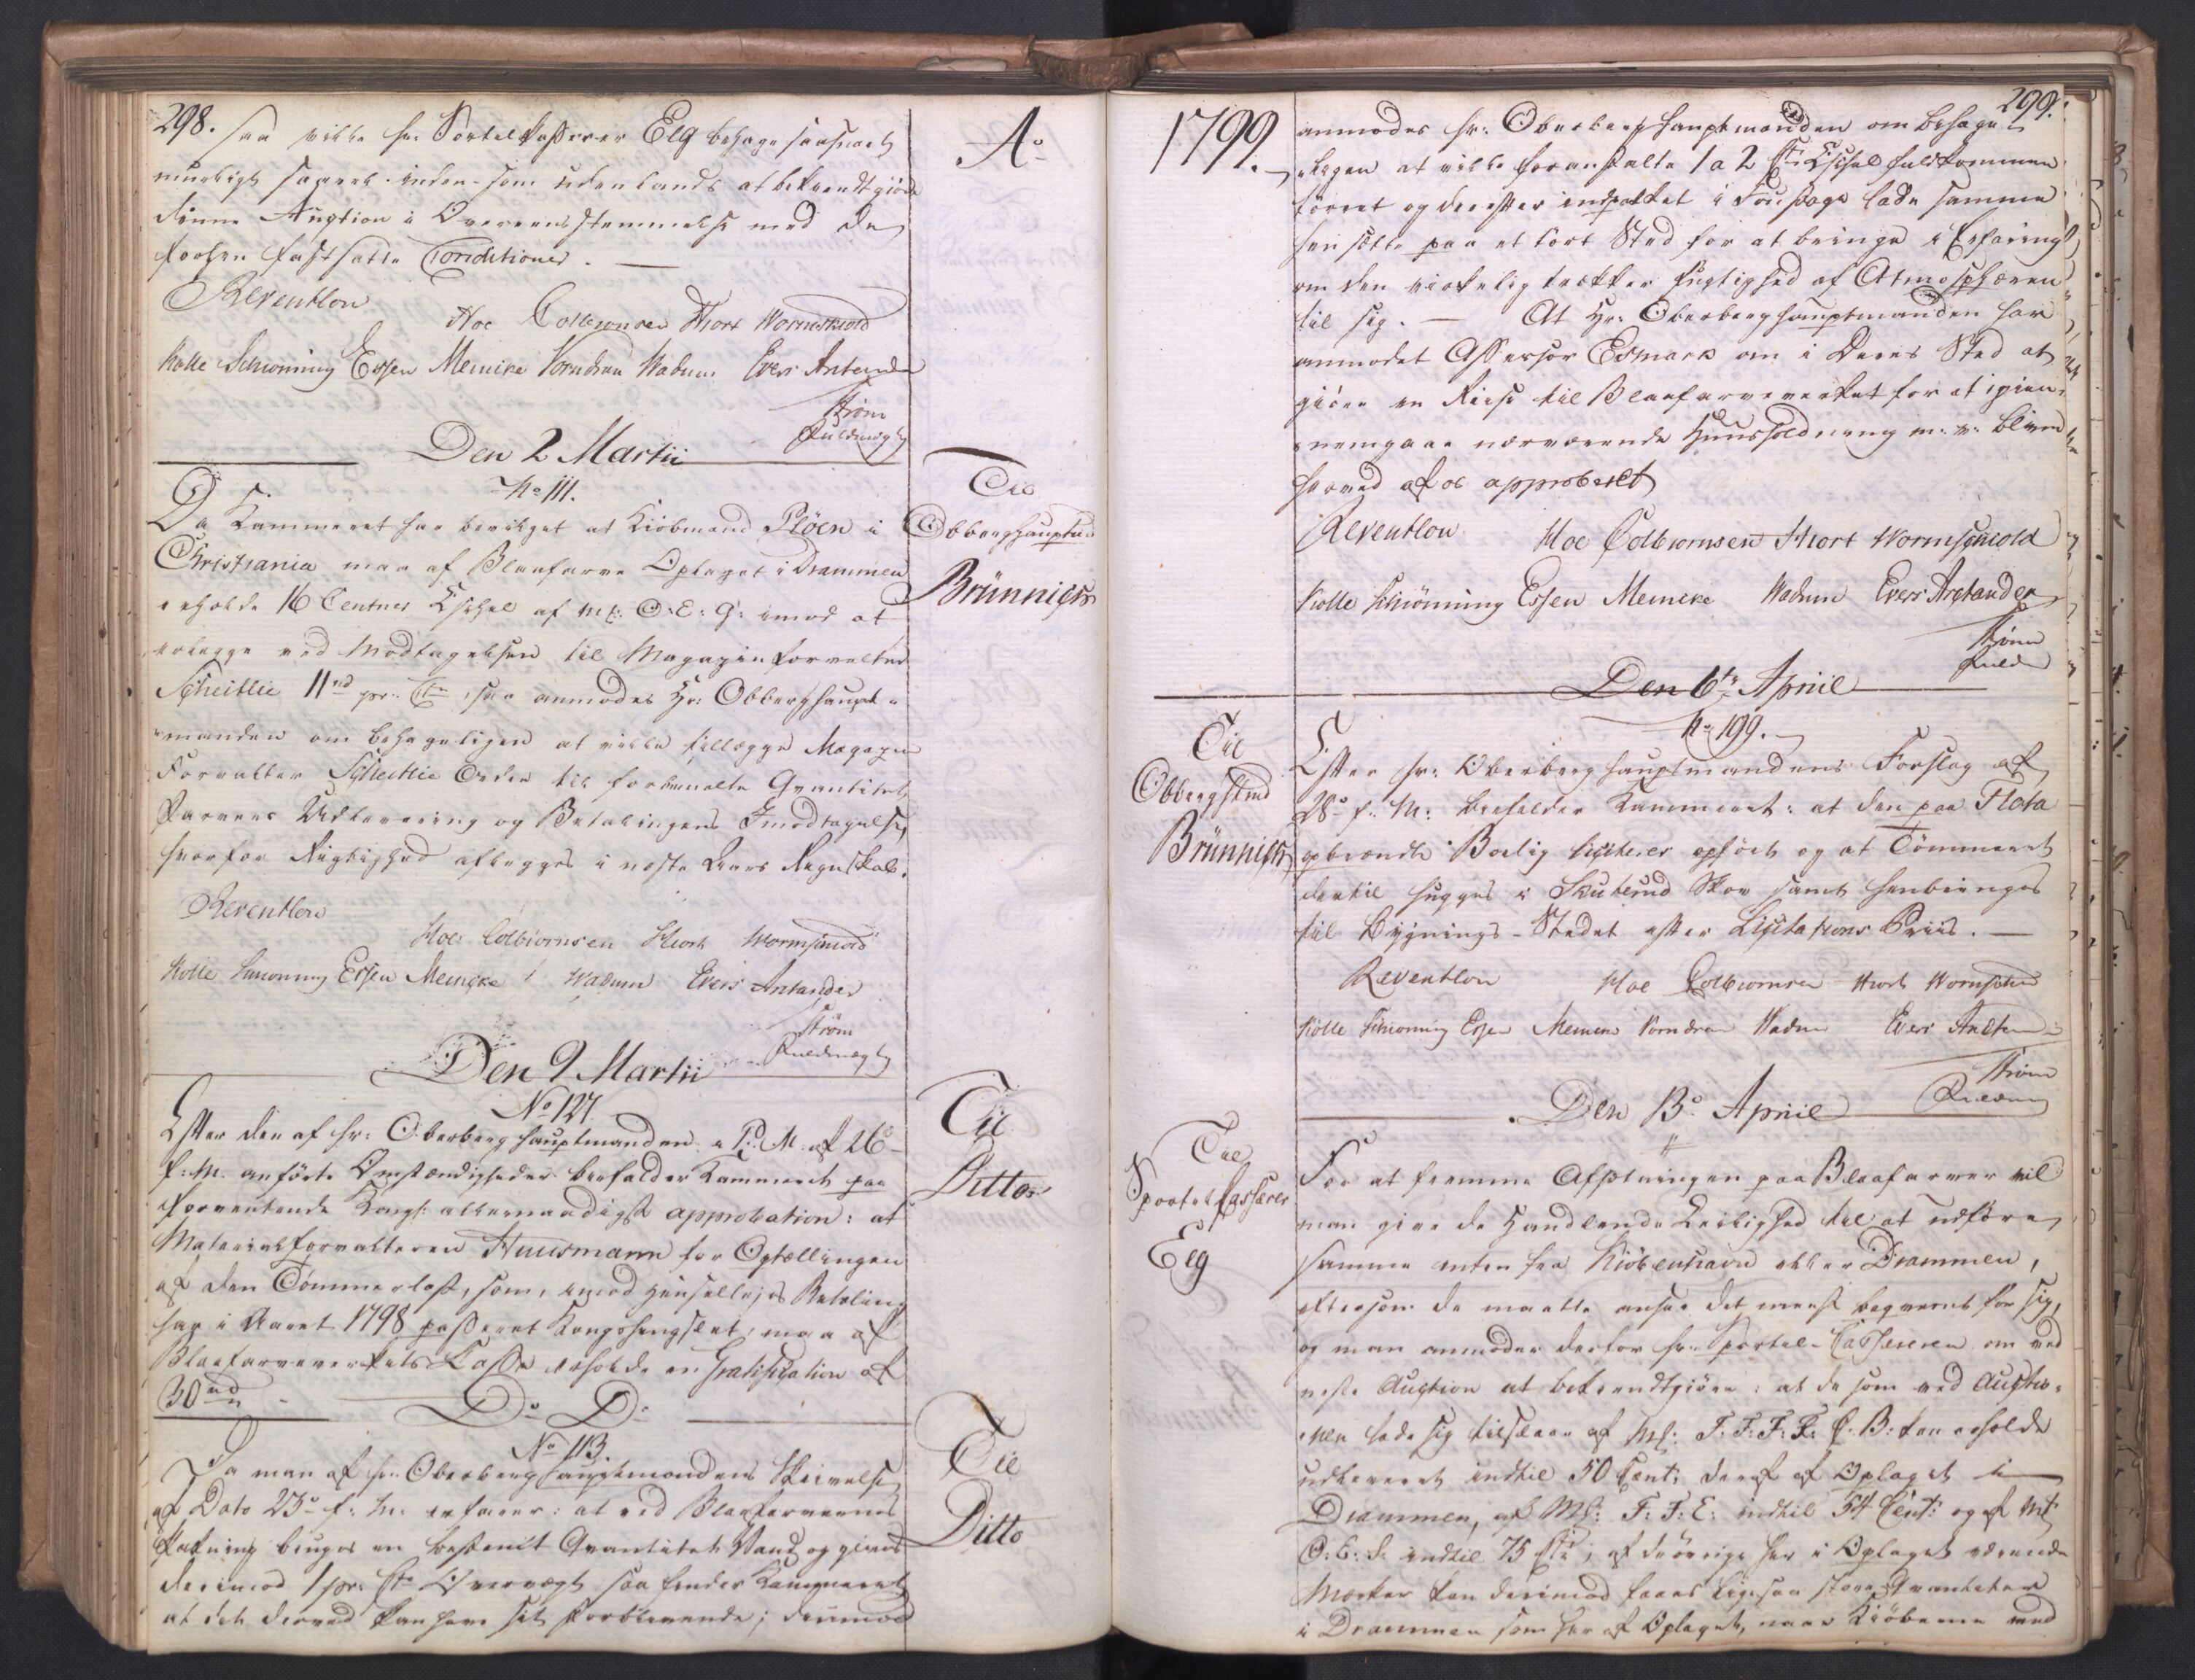 298.
saa ville hr. Sportelkasserer Elg behage saasnart
mueligt saavel inden- som udenlands at bekiendtgiøre
denne Auction i Overeensstemmelse med de
forhen fastsatte Conditioner. —
Reventlow
Hoe Colbiornsen Hiort Wormskiold
Kolle Schiønning Essen Meincke Vorndran Wadum Evers Antander
Strøm
Fuldmægtig
Den 2 Martii
No 111.
Da Kammeret har bevilget at Kiøbmand Plöen i
Christiania maa af Blaafarve Oplaget i Drammen
erholde 16 Centner Eschel af Mk: O: E: G: imod at
erlægge ved Modtagelsen til Magazinforvalter
Scheitlie 11 rd pr. Ctr, saa anmodes Hr: Obberghaupt-
manden om behageligen at ville tillægge Magazin
Forvalter Scheitlie Ordre til formeldte Qvantitet
Farves Udlevering og Betalingens Imodtagelse,
hvorfor Rigtighed aflægges i næste Aars Regnskab.
Reventlow
Hoe Colbiornsen Hiort Wormskiold
Kolle Schiønning Essen Meincke Wadum Evers Antander
Strøm
Fuldmægtig
Den 9 Martii
No 127
Efter den af hr: Oberberghauptmanden i P: M. af 26de
f: M. anførte Omstændigheder bifalder Kammeret paa
forventende Kongl: allernaadigst approbation: at
Materialforvalteren Huusmann for Optællingen
af den Tømmerlast, som, imod Hensellejes Betaling
har i Aaret 1798 passeret Kongshengslet, maa af
Blaafarveverkets Casse erholde en Gratification af
30 rd.
Do Do
No 113.
Da man af hr: Oberberghauptmandens Skrivelse
af Dato 23de f: M: erfarer: at ved Blaafarvernes
Pakning bruges en bestemt Qvantitet Vand og gives
derimod 1 pr: Ctr Overvægt saa finder Kammeret
at det derved kan have sit Forblivende; derimod
Ao
Til
Obberghauptmd
Brünnich
Til
Ditto
Til
Ditto
1799.
299.
anmodes hr: Oberberghauptmanden om behage-
ligen at ville foranstalte 1 a 2 Ctr Eschel fuldkommen
tørret og derefter indpakket i Foustage lade samme
hensætte paa et tørt Sted for at bringe i Erfaring
om den virkelig trækker Fugtighed af Atmosphæren
til sig. — At Hr: Oberberghauptmanden har
anmodet Assessor Esmark om i Deres Sted at
giøre en Reise til Blaafarveverket for at igien-
nemgaae nærværende Huusholdning m: v: bliver
herved af os approberet
Reventlow
Hoe Colbiornsen Hiort Wormskiold
Kolle Schiønning Essen Meincke Wadum Evers Antander
Strøm
Fuldm
Den 6te April
No 199.
Til
Obberghmd
Brünnich
Efter hr: Oberberghauptmandens Forslag af
28de f: M: bifalder Kammeret: at den paa Flota
opbrændte Boelig liciteres opført og at Tømmeret
dertil hugges i Skuterud Skov samt henbringes
til Bygnings-Stedet efter Licitations Priis. —
Reventlow
Hoe Colbiornsen Hiort Wormskiold
Kolle Schiønning Essen Meincke Vorndran Wadum Evers Antander
Strøm
Fuldm
Den 13de April
Til
Sportelkasserer
Elg
For at fremme Afsætningen paa Blaafarver vil
man give de Handlende Leilighed til at udføre
samme enten fra Kiöbenhavn eller Drammen,
eftersom de maatte ansee det meest beqvemt for sig,
og man anmoder derfor hr: Sportel-Casserer om ved
næste Auction at bekiendtgiøre: at de som ved Auctio-
nen lade sig tilslaae af Mk: F: F: F: F: C. B: kan erholde
udleveret indtil 50 Cent: deraf af Oplaget i
Drammen, af Mk: F: F: E: indtil 54 Cent: og af Mk
O: C: indtil 75 Ctr; af de øvrige her i Oplaget værende
Mærker kan derimod faaes ligesaa store Qvantiteter
i Drammen som her af Oplaget, naar Kiøberne ved